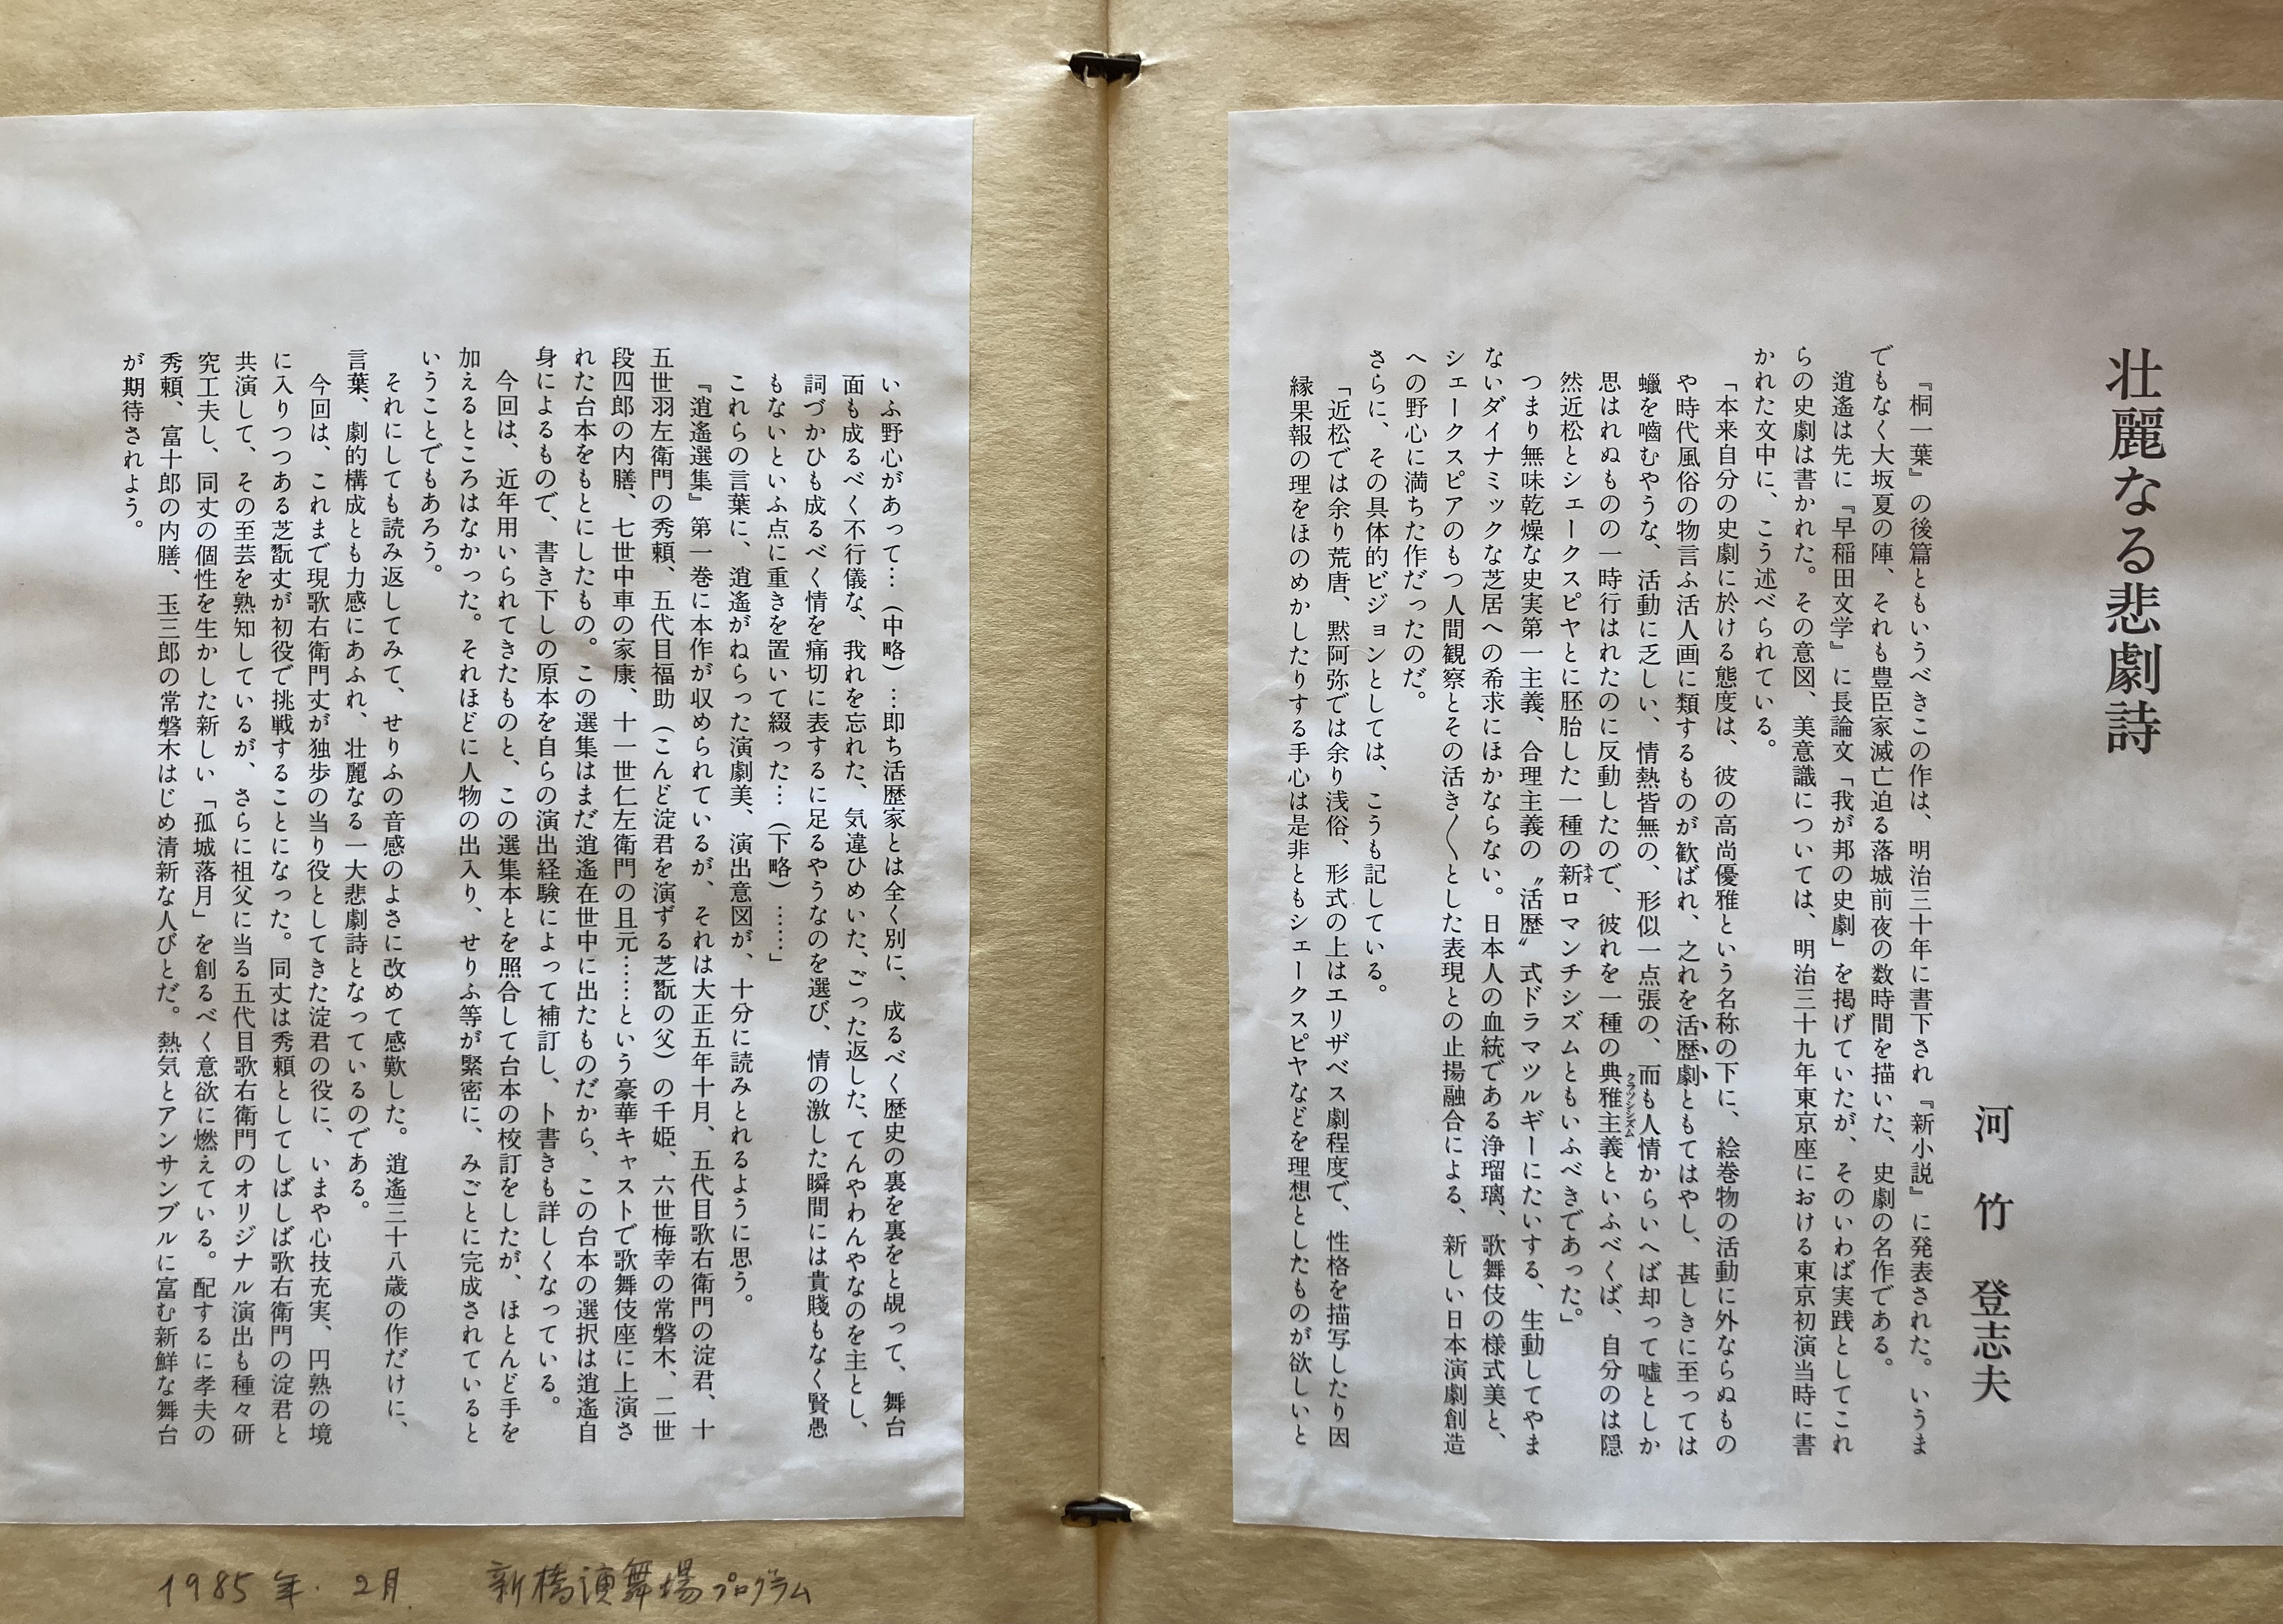 壮麗なる悲劇詩
河竹登志夫
『桐一葉』の後篇ともいうべきこの作は、明治三十年に書下され『新小説』に発表された。いうま
でもなく大坂夏の陣、それも豊臣家滅亡迫る落城前夜の数時間を描いた、史劇の名作である。
逍遙は先に『早稲田文学』に長論文「我が邦の史劇」を掲げていたが、そのいわば実践としてこれ
らの史劇は書かれた。その意図、美意識については、明治三十九年東京座における東京初演当時に書
かれた文中に、こう述べられている。
「本来自分の史劇に於ける態度は、彼の高尚優雅という名称の下に、絵巻物の活動に外ならぬもの
や時代風俗の物言ふ活人画に類するものが歓ばれ、之れを活歴劇ともてはやし、甚しきに至っては
蠟を嚙むやうな、活動に乏しい、情熱皆無の、形似一点張の、而も人情からいへば却って嘘としか
思はれぬものの一時行はれたのに反動したので、彼れを一種の典雅主義といふべくば、自分のは隠
クラツシシズム
然近松とシェークスピヤとに胚胎した一種の新ロマンチシズムともいふべきであった。」
ネオ
つまり無味乾燥な史実第一主義、合理主義の〝活歴〟式ドラマツルギーにたいする、生動してやま
ないダイナミックな芝居への希求にほかならない。日本人の血統である浄瑠璃、歌舞伎の様式美と、
シェークスピアのもつ人間観察とその活き〱とした表現との止揚融合による、新しい日本演劇創造
への野心に満ちた作だったのだ。
さらに、その具体的ビジョンとしては、こうも記している。
「近松では余り荒唐、黙阿弥では余り浅俗、形式の上はエリザベス劇程度で、性格を描写したり因
縁果報の理をほのめかしたりする手心は是非ともシェークスピヤなどを理想としたものが欲しいと
いふ野心があって…（中略）…即ち活歴家とは全く別に、成るべく歴史の裏を裏をと覘って、舞台
面も成るべく不行儀な、我れを忘れた、気違ひめいた、ごった返した、てんやわんやなのを主とし、
詞づかひも成るべく情を痛切に表するに足るやうなのを選び、情の激した瞬間には貴賤もなく賢愚
もないといふ点に重きを置いて綴った…（下略）……」
これらの言葉に、逍遙がねらった演劇美、演出意図が、十分に読みとれるように思う。
『逍遙選集』第一巻に本作が収められているが、それは大正五年十月、五代目歌右衛門の淀君、十
五世羽左衛門の秀頼、五代目福助（こんど淀君を演ずる芝翫の父）の千姫、六世梅幸の常磐木、二世
段四郎の内膳、七世中車の家康、十一世仁左衛門の且元……という豪華キャストで歌舞伎座に上演さ
れた台本をもとにしたもの。この選集はまだ逍遙在世中に出たものだから、この台本の選択は逍遙自
身によるもので、書き下しの原本を自らの演出経験によって補訂し、ト書きも詳しくなっている。
今回は、近年用いられてきたものと、この選集本とを照合して台本の校訂をしたが、ほとんど手を
加えるところはなかった。それほどに人物の出入り、せりふ等が緊密に、みごとに完成されていると
いうことでもあろう。
それにしても読み返してみて、せりふの音感のよさに改めて感歎した。逍遙三十八歳の作だけに、
言葉、劇的構成とも力感にあふれ、壮麗なる一大悲劇詩となっているのである。
今回は、これまで現歌右衛門丈が独歩の当り役としてきた淀君の役に、いまや心技充実、円熟の境
に入りつつある芝翫丈が初役で挑戦することになった。同丈は秀頼としてしばしば歌右衛門の淀君と
共演して、その至芸を熟知しているが、さらに祖父に当る五代目歌右衛門のオリジナル演出も種々研
究工夫し、同丈の個性を生かした新しい「孤城落月」を創るべく意欲に燃えている。配するに孝夫の
秀頼、富十郎の内膳、玉三郎の常磐木はじめ清新な人びとだ。熱気とアンサンブルに富む新鮮な舞台
が期待されよう。
1985年.2月. 新橋演舞場プログラム